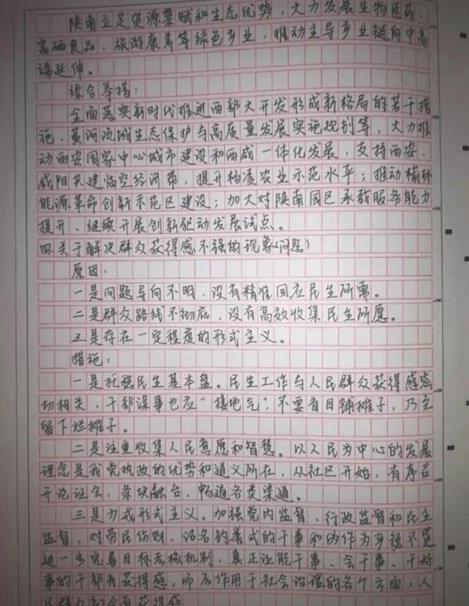 陕南立足资源禀赋和生态优势，大力发展生物医药、
富硒食品、旅游康养等绿色产业，推动主导产业链向中高
端延伸。
综合举措：
全面落实新时代推进西部大开发形成新格局的若干措
施、黄河流域生态保护与高质量发展实施规划等，大力推
动西安国家中心城市建设和西咸一体化发展，支持西安、
咸阳共建临空经济带，提升杨凌农业示范水平；推动榆林
能源革命创新示范区建设；加大对陕南园区承载服务能力
提升、继续开展创新驱动发展试点。
四关于解决群众获得感不强的现象（问题）
原因：
一是问题导向不明，没有精准回应民生所需。
二是群众路线不彻底，没有高效收集民生所愿。
三是存在一定程度的形式主义。
措施：
一是托稳民生基本盘。民生工作与人民群众获得感密
切相关，干部谋事也应"接地气"，不要盲目铺摊子，乃至
留下烂摊子。
二是注重收集人民意愿和智慧。以人民为中心的发展
理念是我党执政的优势和道义所在，从社区开始，有序召
开论证会，条块融合，畅通各类渠道。
三是力戒形式主义。加强党内监督、行政监督和民主
监督，对劳民伤财、沽名钓誉式的干事和
进一步完善目标考核机制，真正让能干事、会干事、干好
事的干部有获得感，而后作用于社会治理的各个方面，人
民群众